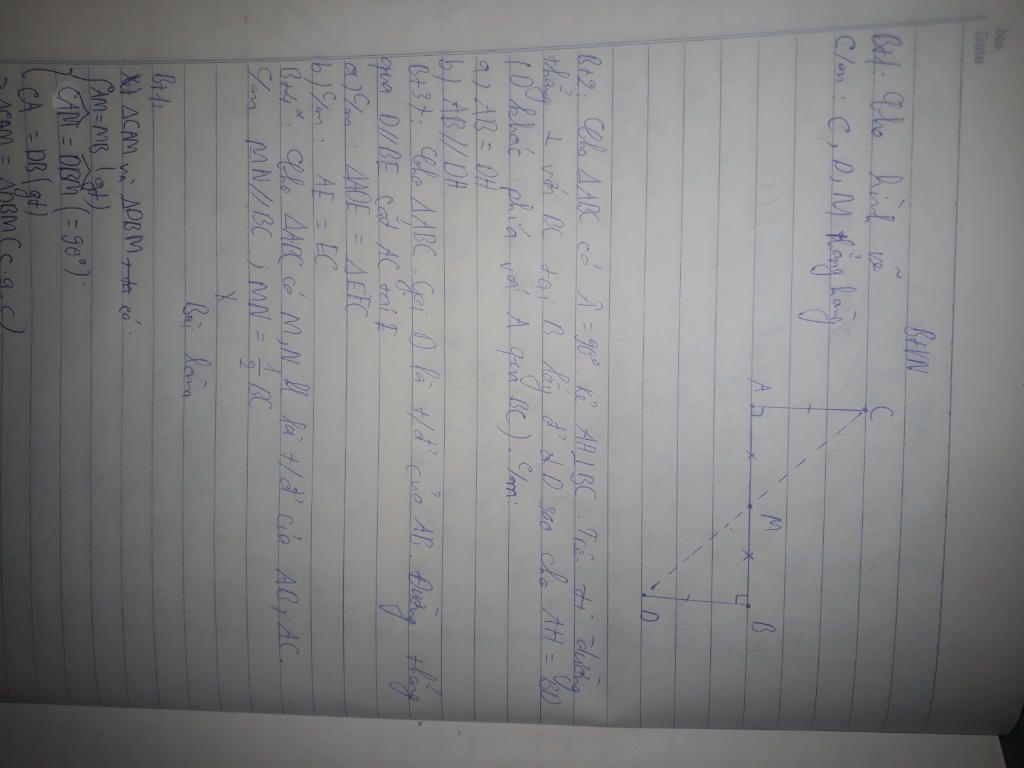 No
Date
BTVN
Bt1. Cho hình vẽ
C/m: C, D, M thẳng hàng
C
A
M
B
D
Bt2. Cho ΔABC có Â = 90°. Kẻ AH⊥BC. Trên đường
thẳng ⊥ với BC tại B lấy đ' D sao cho AH = BD
(D khác phía với A qua BC). C/m:
a) AB = DH
b) AB // DH
Bt3*: Cho ΔABC. Gọi D là t/đ' của AB. Đường thẳng
qua D//BE cắt AC tại E
a) C/m: ΔADE = ΔEFC
b) C/m: AE = EC
Bt4*: Cho ΔABC có M, N là t/đ' của AB, AC.
C/m MN//BC; MN = 1/2 BC
Bài làm
Bt1.
X) ΔCAM và ΔDBM ta có:
AM = MB (gt)
(= 90°).
CA = DB (gt)
(c.g.c)